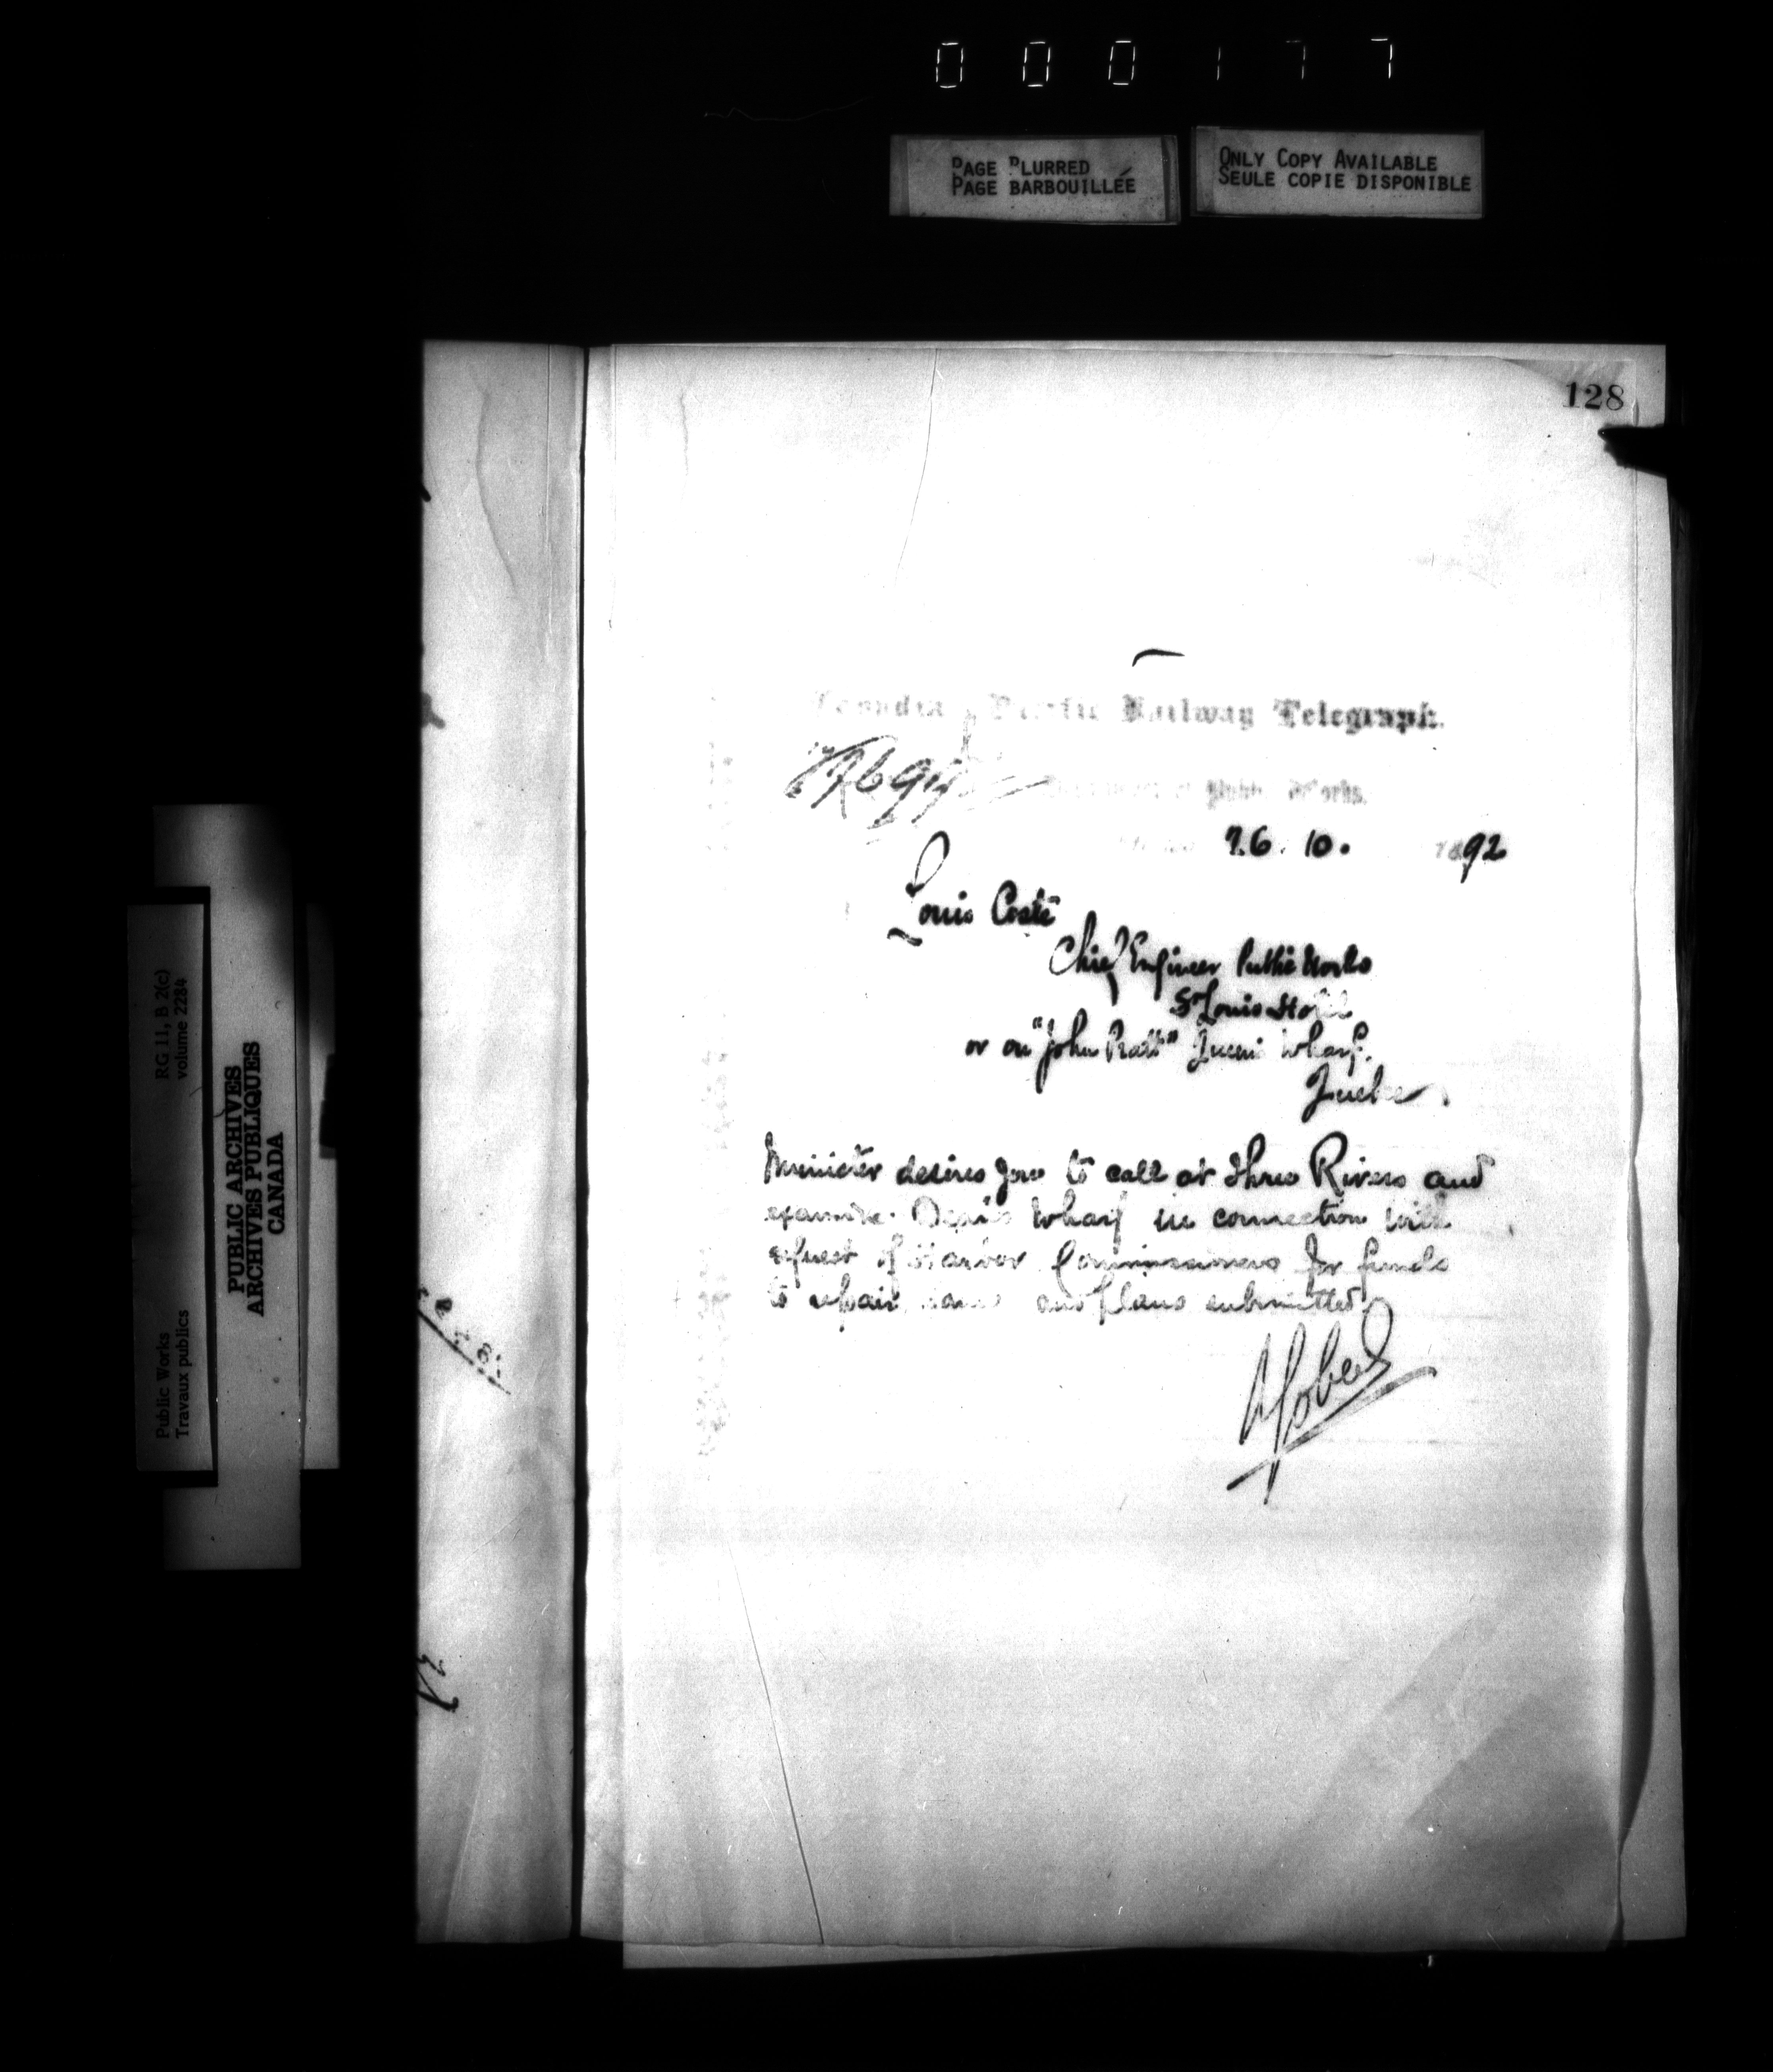 000177
PAGE BLURRED
PAGE BARBOUILLÉE
ONLY COPY AVAILABLE
SEULE COPIE DISPONIBLE
128
Canadian Pacific Railway Telegraph.
Public Works.
26. 10. 1892
Louis Coste
Chief Engineer Public Works
St Louis Hotel
or on "John Pratt" Queen's Wharf,
Quebec.
Minister desires you to call at Three Rivers and
examine wharf in connection with
request of Harbor Commissioners for funds
to repair same and plans submitted
Gobeil
RG 11, B 2(c)
volume 2284
Public Works
Travaux publics
PUBLIC ARCHIVES
ARCHIVES PUBLIQUES
CANADA